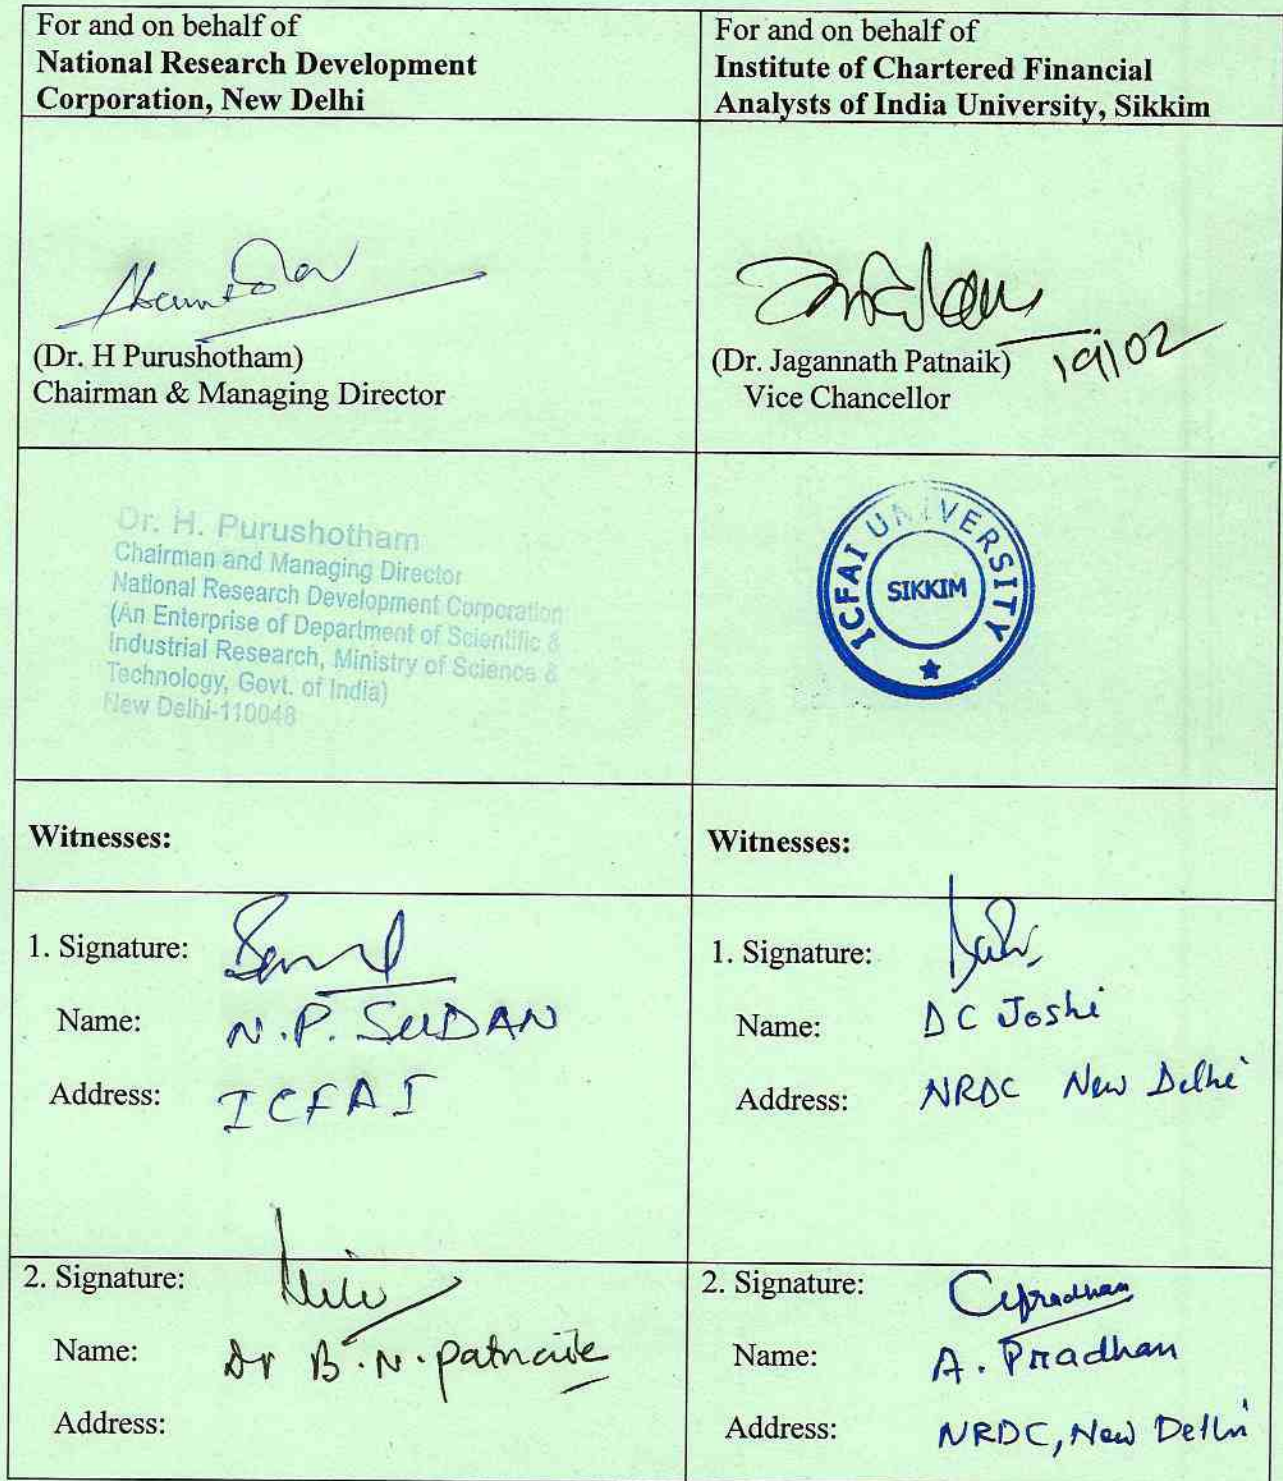 For and on behalf of
National Research Development
Corporation, New Delhi
For and on behalf of
Institute of Chartered Financial
Analysts of India University, Sikkim
(Dr. H Purushotham)
Chairman & Managing Director
19/02
(Dr. Jagannath Patnaik)
Vice Chancellor
Dr. H. Purushotham
Chairman and Managing Director
National Research Development Corporation
(An Enterprise of Department of Scientific &
Industrial Research, Ministry of Science &
Technology, Govt. of India)
New Delhi-110048
ICFAI UNIVERSITY
SIKKIM
Witnesses:
Witnesses:
1. Signature:
Name: N.P. SUDAN
Address: ICFAI
1. Signature:
Name: DC Joshi
Address: NRDC New Delhi
2. Signature:
Name: Dr B.N. Patnaik
Address:
2. Signature: Apradhan
Name: A. Pradhan
Address: NRDC, New Delhi